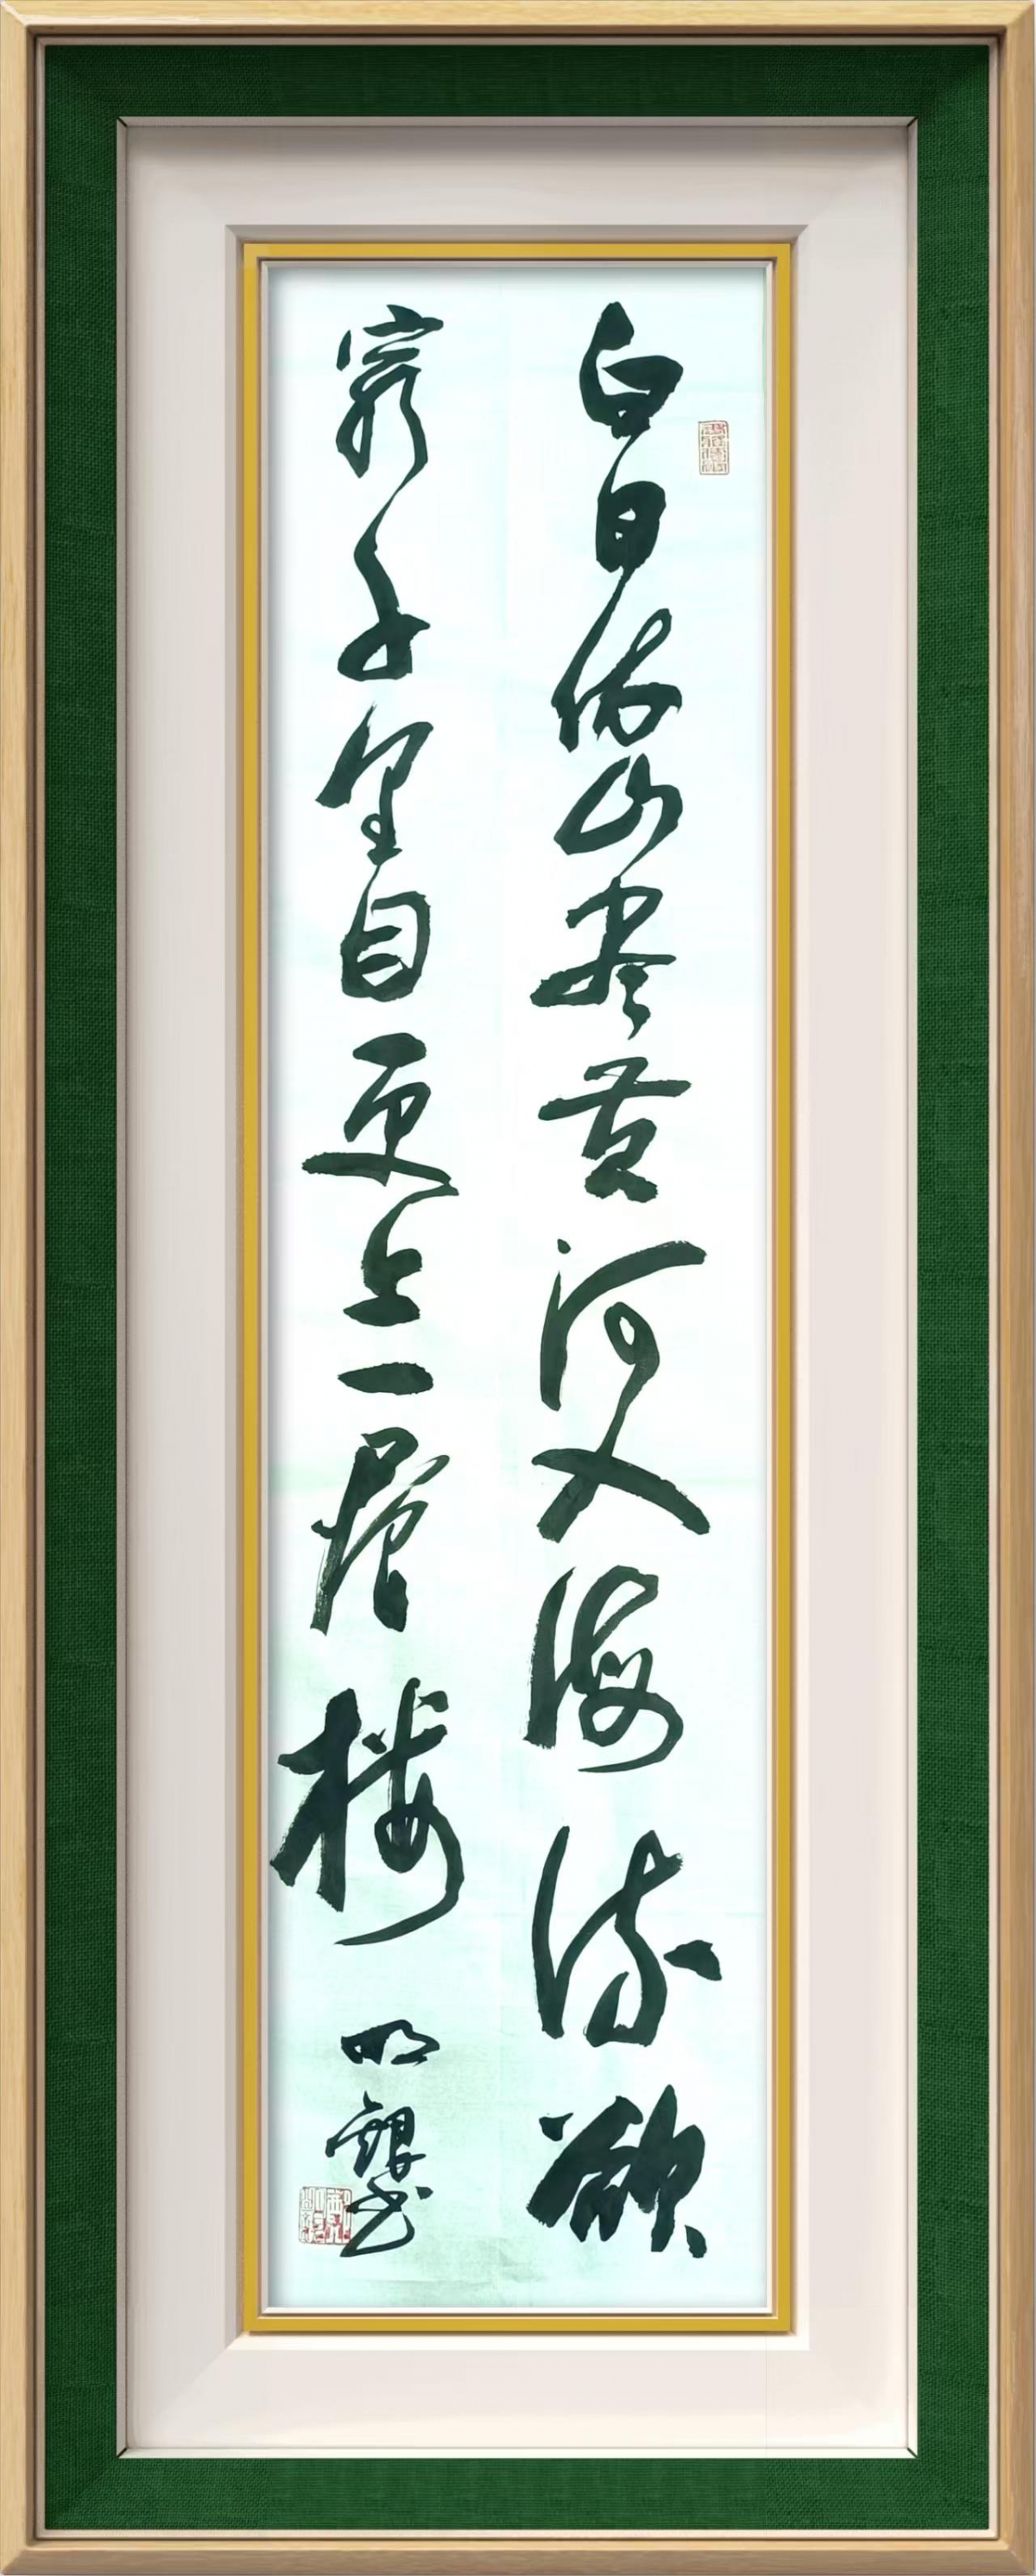 白日依山尽黄河入海流欲
穷千里目更上一層楼
明 书